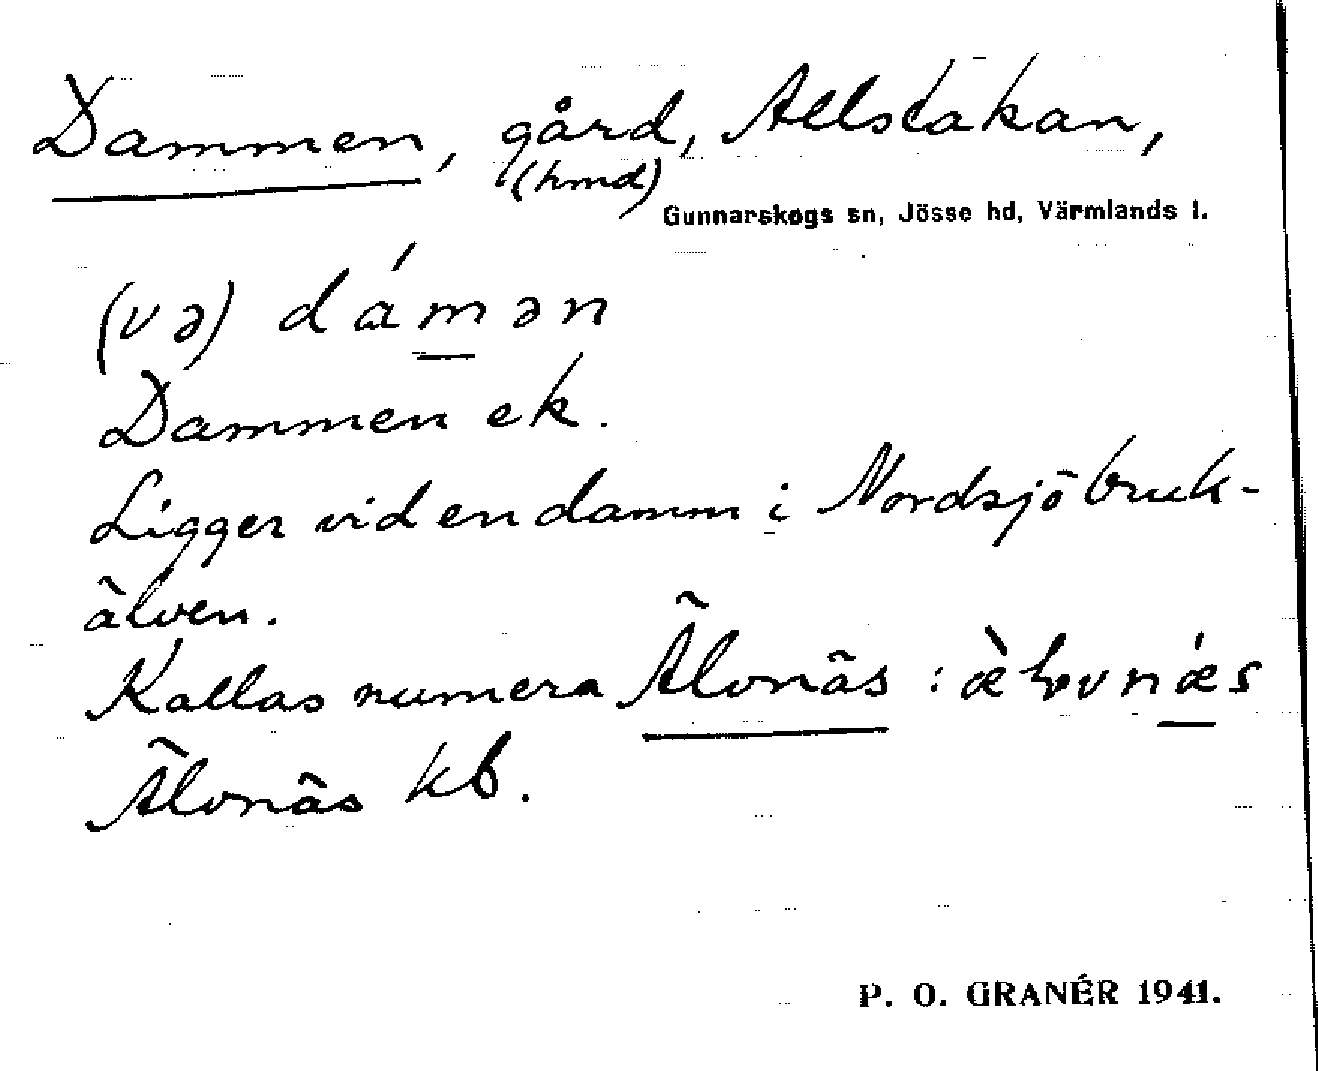 Dammen, gård, Allstakan,
(hmd)
Gunnarskogs sn, Jösse hd, Värmlands l.
(və) dámən
Dammen ek.
Ligger vid en damm i Nordsjöbruk-
älven.
Kallas numera Älvnäs :
Älvnäs kb.
P. O. GRANÉR 1941.